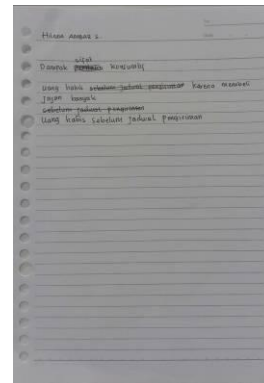 Dampak sifat konsumtif
Uang habis sebelum jadwal pengiriman karena membeli
jajan banyak
sebelum jadwal pengiriman
Uang habis sebelum jadwal pengiriman